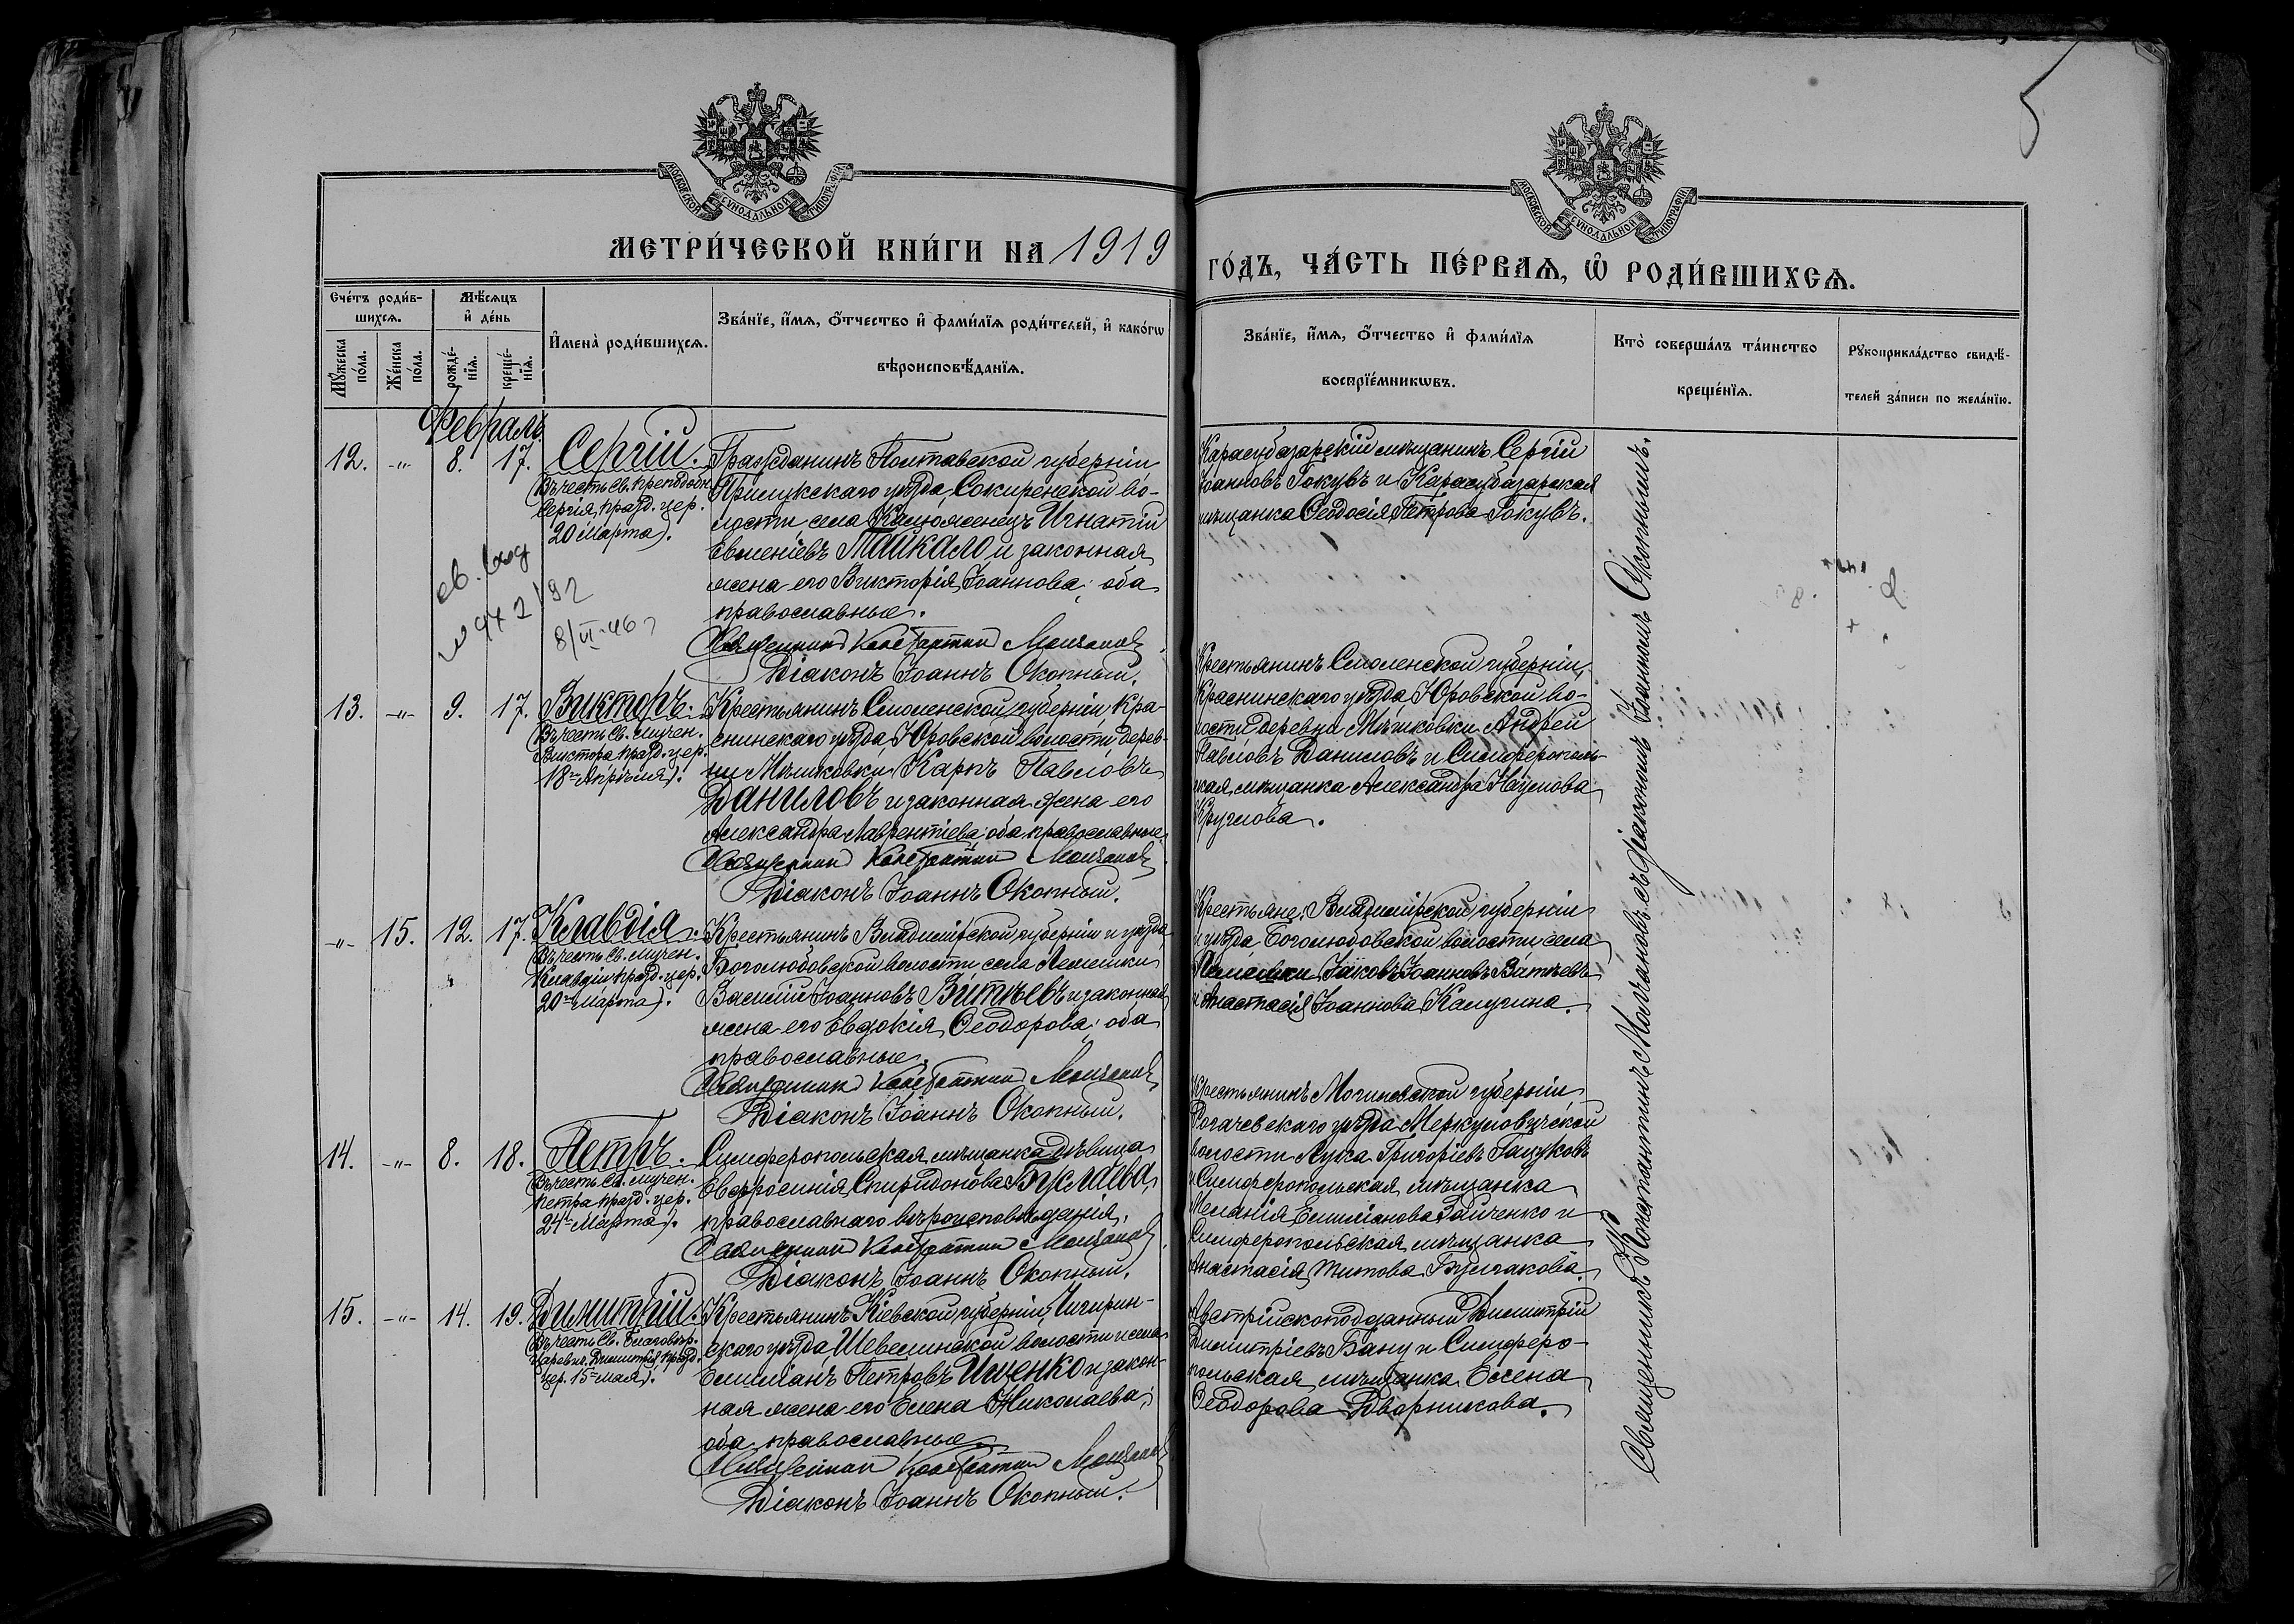 5
МОСКОВСКОЙ СѴНОДАЛЬНОЙ ТИПОГРАФІИ
МОСКОВСКОЙ СѴНОДАЛЬНОЙ ТИПОГРАФІИ
МЕТРИ́ЧЕСКОЙ КНИ́ГИ НА 1919
ГО́ДЪ, ЧА́СТЬ ПЕ́РВАѦ, Ѽ РОДИ́ВШИХСѦ.
Сче́тъ роди́в-
шихсѧ.
Мꙋ́жеска
по́ла.
Же́нска
по́ла.
Мѣ́сѧцъ
и҆ де́нь
рожде́-
нїѧ.
креще́-
нїѧ.
И҆мена̀ роди́вшихсѧ.
Зва́нїе, и҆́мѧ, ѻ҆́тчество и҆ фами́лїѧ роди́телей, и҆ како́гѡ
вѣроисповѣ́данїѧ.
Зва́нїе, и҆́мѧ, ѻ҆́тчество и҆ фами́лїѧ
воспрїе́мникѡвъ.
Кто̀ соверша́лъ та́инство
креще́нїѧ.
Рꙋкоприкла́дство свидѣ́-
телей за́писи по жела́нїю.
Февраль.
12. -"- 8. 17.
Сергій.
Въ честь Св. преподобн.
Сергія, празд. цер.
20 Марта).
8/VI-46
Гражданинъ Полтавской губерніи
Прилукскаго уѣзда, Сокиренской во-
лости села Калюженецъ Игнатій
Евменіевъ Тайкало и законная
жена его Викторія Іоаннова; оба
православные.
Священникъ Константинъ Молчановъ
Діаконъ Іоаннъ Окопный.
Карасубазарскій мѣщанинъ Сергій
Іоанновъ Гокувъ и Карасубазарская
мѣщанка Ѳеодосія Петрова Гокувъ.
13. -"- 9. 17.
Викторъ.
Въ честь Св. мучен.
Виктора празд. цер.
18-Апрѣля).
Крестьянинъ Смоленской губерніи, Кра-
снинскаго уѣзда Юровской волости дерев-
ни Мѣшковки Карпъ Павловъ
Даниловъ и законная жена его
Александра Лаврентіева; оба православные.
Священникъ Константинъ Молчановъ
Діаконъ Іоаннъ Окопный.
Крестьянинъ Смоленской губерніи,
Краснинскаго уѣзда, Юровской во-
лости деревни Мѣшковки Андрей
Павловъ Даниловъ и Симферополь-
ская мѣщанка Александра Наумова
Круглова.
-"- 15. 12. 17.
Клавдія.
Въ честь Св. мучен.
Клавдіи празд. цер.
20-Марта).
Крестьянинъ Владимірской губерніи и уѣзда,
Боголюбовской волости села Лемешки
Василій Іоанновъ Витчевъ и законная
жена его Евдокія Ѳеодорова; оба
православные.
Священникъ Константинъ Молчановъ
Діаконъ Іоаннъ Окопный.
Крестьяне, Владимірской губерніи
и уѣзда Боголюбовской волости села
Лемешки Іаковъ Іоанновъ Ватчевъ
и Анастасія Іоаннова Калугина.
14. -"- 8. 18.
Петръ.
Въ честь Св. мучен.
Петра празд. цер.
24-Марта).
Симферопольская мѣщанка дѣвица
Евфросинія Спиридонова Буслаева,
православнаго вѣроисповѣданія.
Священникъ Константинъ Молчановъ
Діаконъ Іоаннъ Окопный.
Крестьянинъ Могилевской губерніи
Рогачевскаго уѣзда Меркуловичской
волости Лука Григоріевъ Гацуковъ
и Симферопольская мѣщанка
Меланія Емиліанова Зайченко и
Симферопольская мѣщанка
Анастасія Титова Булгакова.
15. -"- 14. 19.
Димитрій.
Въ честь Св. Благовѣр.
Царевич. Димитрія, празд.
цер. 15-мая).
Крестьянинъ Кіевской губерніи, Чигирин-
скаго уѣзда Шевелинской волости и села
Емиліанъ Петровъ Ищенко и закон-
ная жена его Елена Николаева;
оба православные.
Священникъ Константинъ Молчановъ
Діаконъ Іоаннъ Окопный.
Австрійскоподданный Димитрій
Димитріевъ Бану и Симферо-
польская мѣщанка Елена
Ѳеодорова Дворникова.
Священникъ Константинъ Молчановъ съ діакономъ Іоанномъ Окопнымъ.